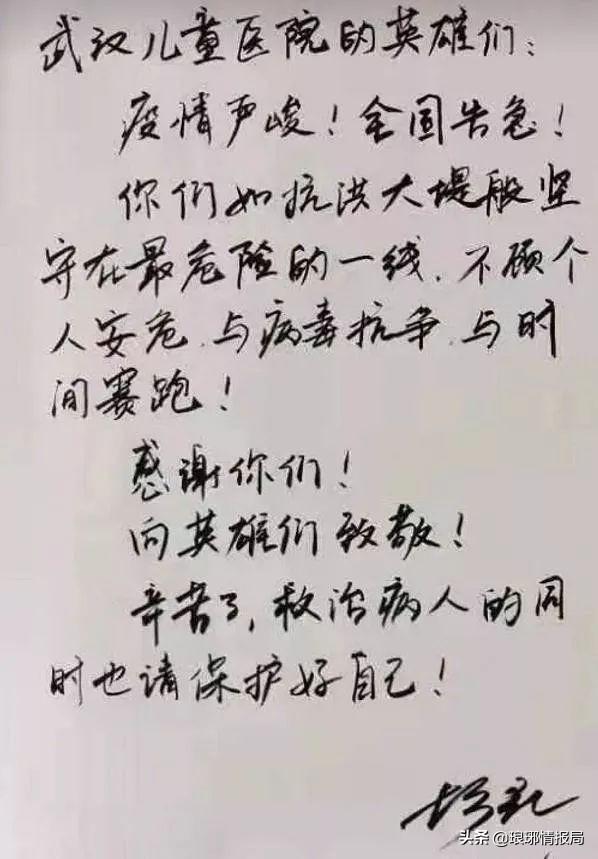 武汉儿童医院的英雄们：
疫情严峻！全国告急！
你们如抗洪大堤般坚
守在最危险的一线、不顾个
人安危、与病毒抗争、与时
间赛跑！
感谢你们！
向英雄们致敬！
辛苦了，救治病人的同
时也请保护好自己！
头条@琅琊情报局